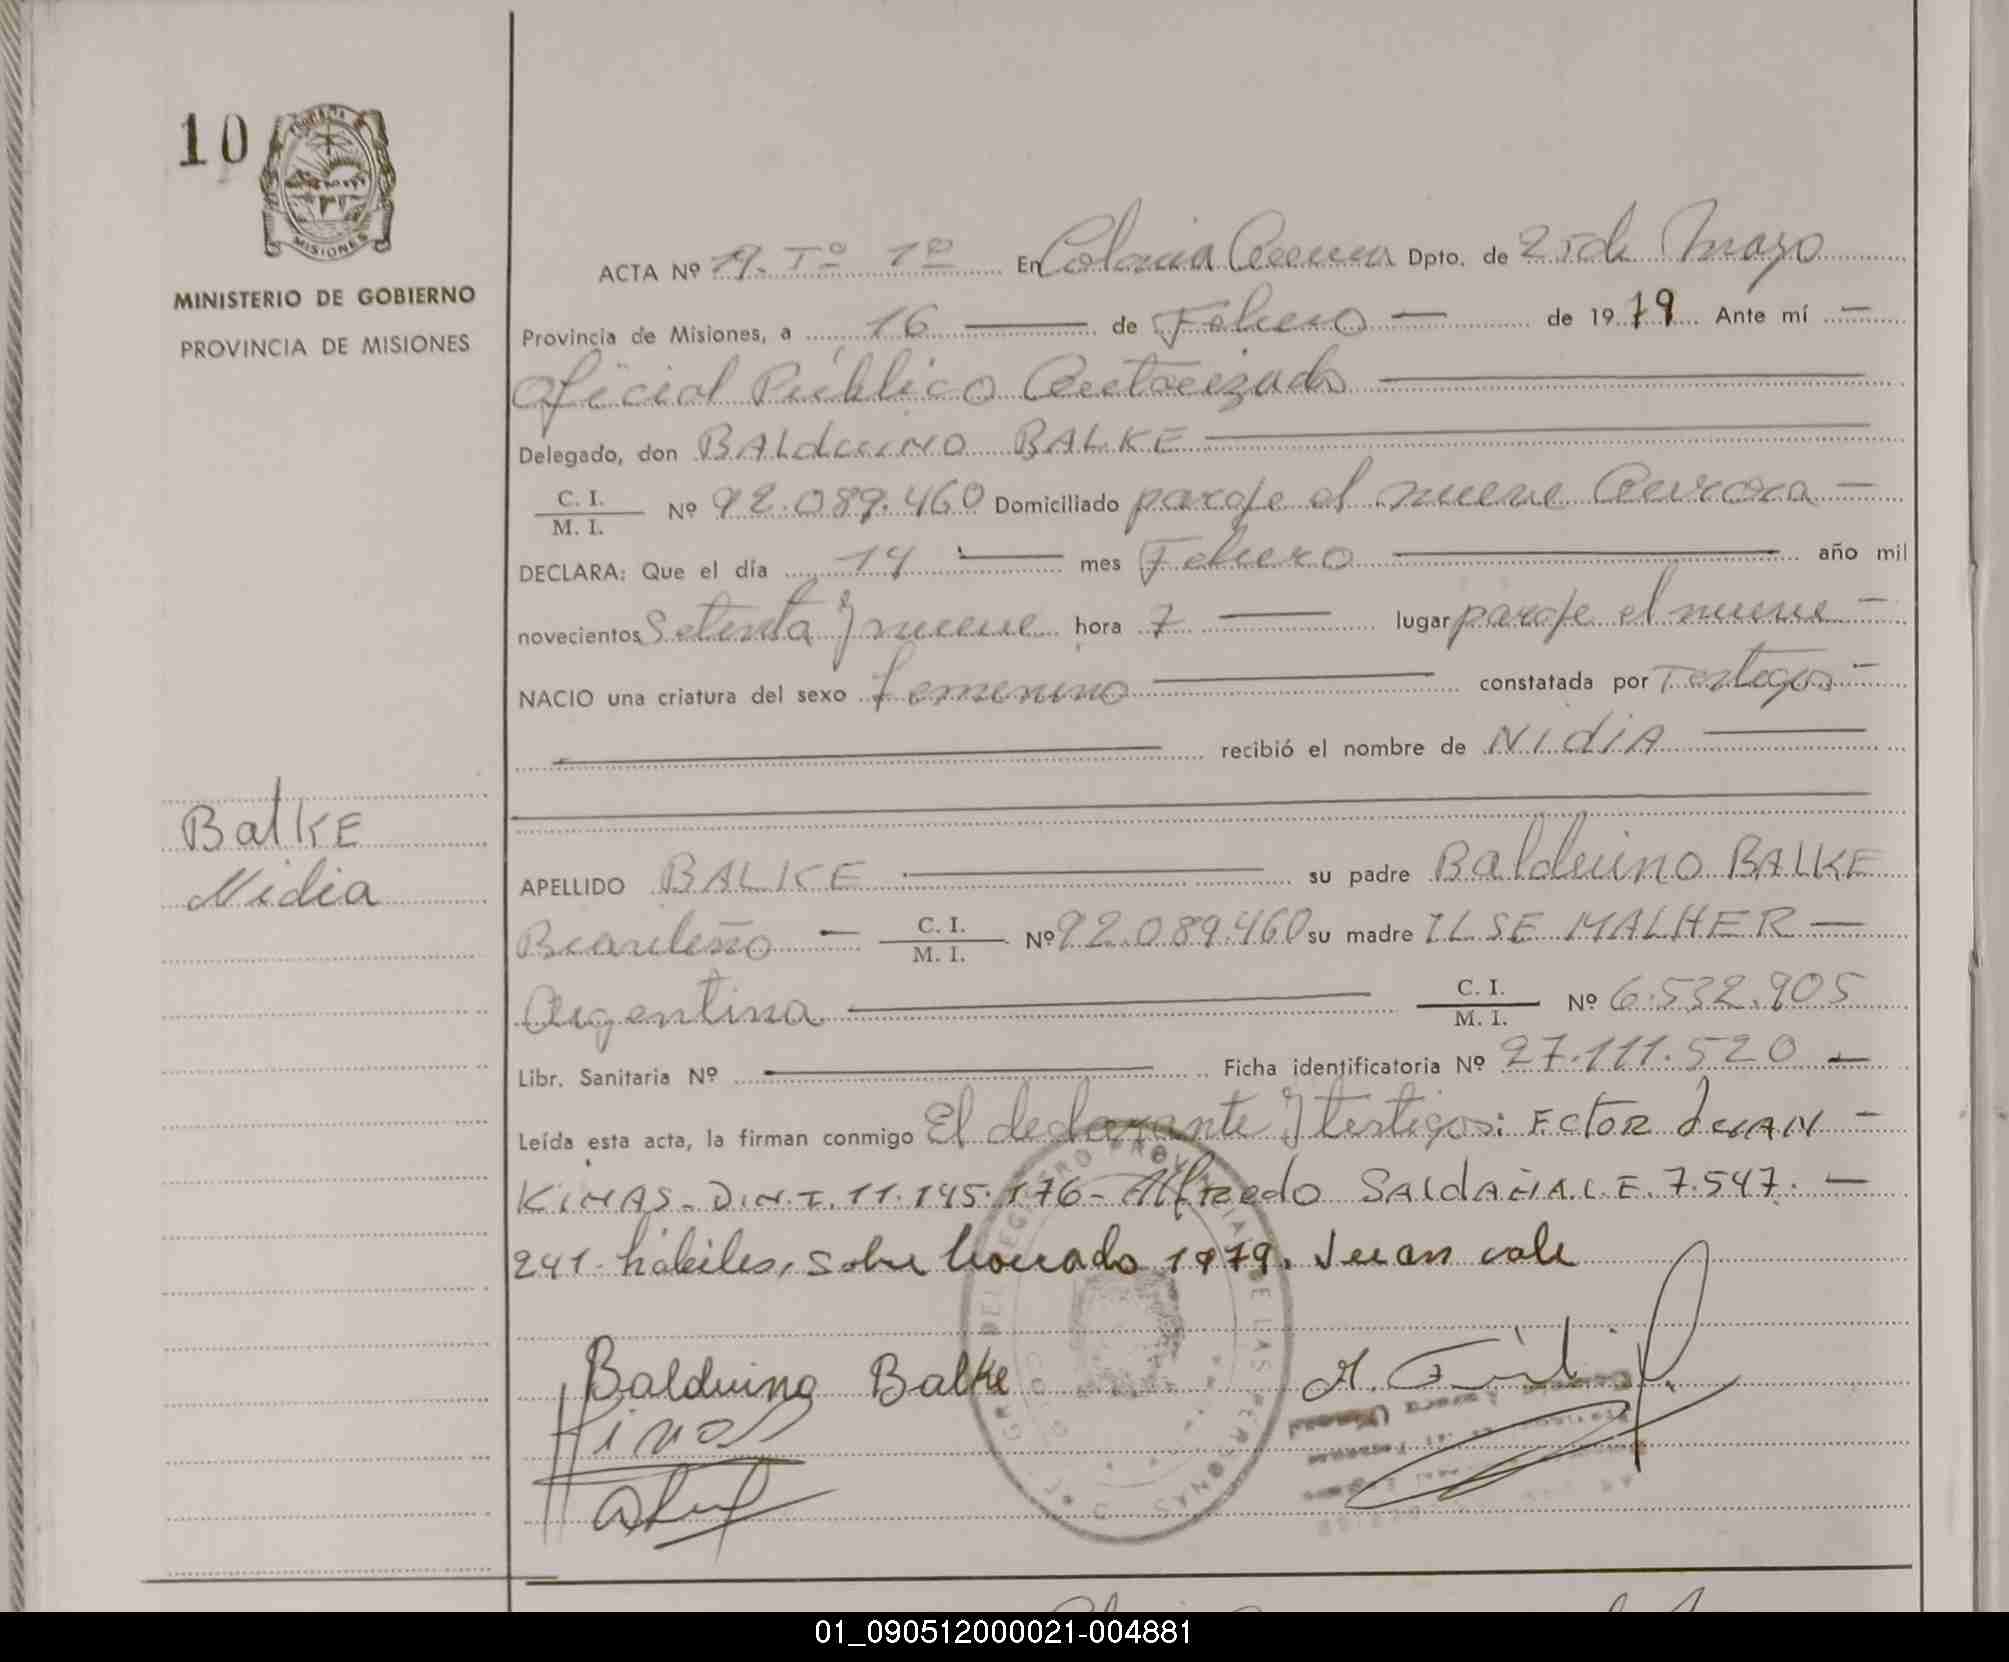 10
MISIONES
MINISTERIO DE GOBIERNO
PROVINCIA DE MISIONES
Balke
Nidia
ACTA Nº 19. Tº 1º En Colonia Aurora Dpto. de 25 de Mayo
Provincia de Misiones, a 16 de Febrero de 1979 Ante mí
Oficial Público Autorizado
Delegado, don BALduiNO BALKE
C. I. / M. I. Nº 92.089.460 Domiciliado paraje el nueve Aurora
DECLARA: Que el día 14 mes Febrero año mil
novecientos Setenta y nueve hora 7 lugar paraje el nueve
NACIO una criatura del sexo femenino constatada por Testigos
recibió el nombre de NidiA
APELLIDO BALKE su padre Balduino BALKE
Brasileño C. I. / M. I. Nº 92.089.460 su madre ILSE MALHER
Argentina C. I. / M. I. Nº 6.532.905
Libr. Sanitaria Nº Ficha identificatoria Nº 27.111.520
Leída esta acta, la firman conmigo El declarante y testigos: ECTOR JUAN
KINAS- D.N.I. 11.145.176- Alfredo SAldAÑA L.E. 7.547.
241- hábiles, Sobre borrado 1979. Juan vale
Balduino Balke
01_090512000021-004881